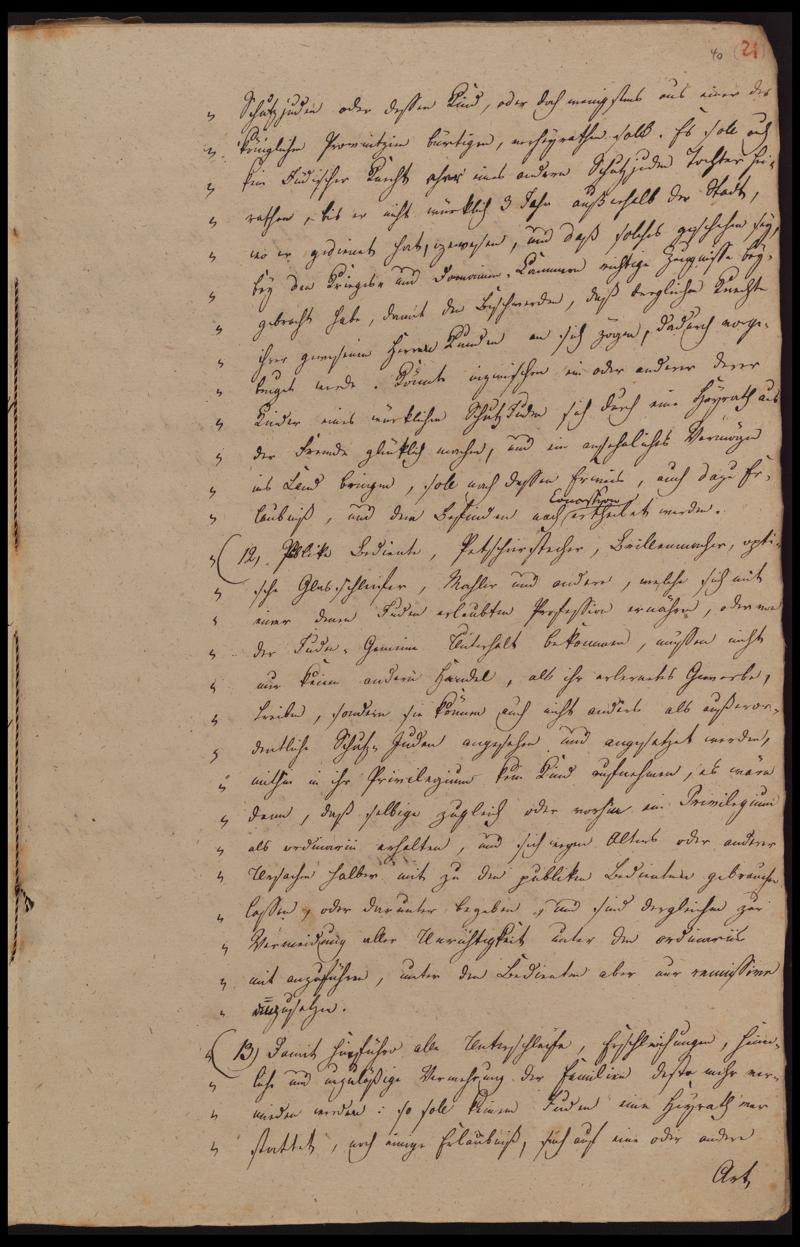 40 (21)
„ Schutzjuden oder dessen Kind, oder doch wenigstens aus einer der
„ königlichen Provintzien bürtigen, verheyrathen soll. Es soll auch
„ kein Jüdischer Knecht eines andern Schutzjuden Tochter hei-
„ rathen, bis er nicht würklich 3 Jahr außerhalb der Stadt,
„ wo er gedienet hat, gewesen, und daß solches geschehen sey,
„ bey den Krieges- und Domainen-Kammern richtige Zeugnisse bey-
„ gebracht habe, damit den Beschwerden, daß dergleichen Knechte
„ ihrer gewesenen Herren Kunden an sich zögen, dadurch vorge-
„ beuget werde. Könnte inzwischen ein oder anderer derer
„ Kinder eines würklichen Schutz Juden sich durch eine Heyrath aus
„ der Fremde glücklich machen, und ein ansehnliches Vermögen
„ ins Land bringen, soll nach dessen Erweis, auch dazu Er-
„ laubniß, und dem Befinden nach Concession ertheilet werden.
„ (12) Publike Bediente, Petschierstecher, Brillenmacher, opti-
„ sche Glasschleifer, Mahler und andere, welche sich mit
„ einer denen Juden erlaubten Profession ernähren, oder von
„ der Juden-Gemeine Unterhalt bekommen, müssen nicht
„ nur keinen andern Handel, als ihr erlerntes Gewerbe,
„ treiben, sondern sie können auch nicht anders als außeror-
„ dentliche Schutz-Juden angesehen und angesetzet werden,
„ mithin in ihr Privilegium kein Kind aufnehmen, es wäre
„ denn, daß selbige zugleich oder vorhin ein Privilegium
„ als ordinarii erhalten, und sich wegen Alters oder anderer
„ Ursachen halber mit zu den publiken Bedienten gebrauchen
„ lassen, oder darunter begeben, und sind dergleichen zur
„ Vermeidung aller Unrichtigkeit unter den ordinariis
„ mit anzuführen, unter den Bedienten aber nur remissive
„ anzusetzen.
„ (13) Damit hinführo alle Unterschleife, Erschleichungen, heim-
„ liche und unzuläßige Vermehrung der Familien desto mehr ver-
„ mieden werden: so soll keinem Juden eine Heyrath ver
„ stattet, noch einige Erlaubniß, sich auf eine oder andere
Art,